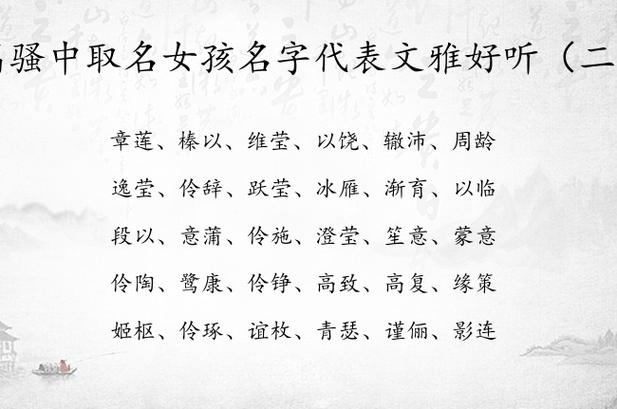 骚中取名女孩名字代表文雅好听（二
章莲、榛以、维莹、以饶、辙沛、周龄
逸莹、伶辞、跃莹、冰雁、渐育、以临
段以、意蒲、伶施、澄莹、笙意、蒙意
伶陶、鹭康、伶铮、高致、高复、缘策
姬枢、伶琢、谊枚、青瑟、谨俪、影连